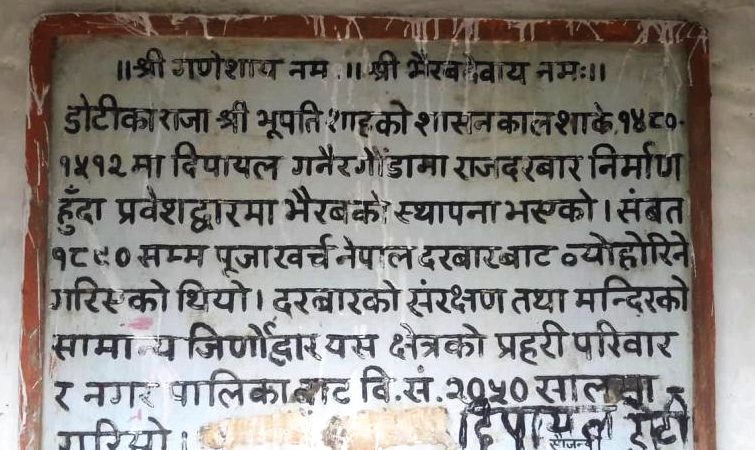 ॥श्री गणेशाय नम ॥ श्री भैरवदेवाय नमः॥
डोटीका राजा श्री भूपति शाहको शासनकाल शाके १४८०-
१५१२ मा दिपायल गनैरगौंडामा राजदरबार निर्माण
हुँदा प्रवेशद्वारमा भैरबको स्थापना भएको । संबत
१८९० सम्म पूजाखर्च नेपाल दरबारबाट व्योहोरिने
गरिएको थियो। दरबारको संरक्षण तथा मन्दिरको
सामान्य जिर्णोद्वार यस क्षेत्रको प्रहरी परिवार
र नगर पालिका बाट वि.सं. २०५० सालमा
गरियो। दिपायल डोटी
सौजन्य